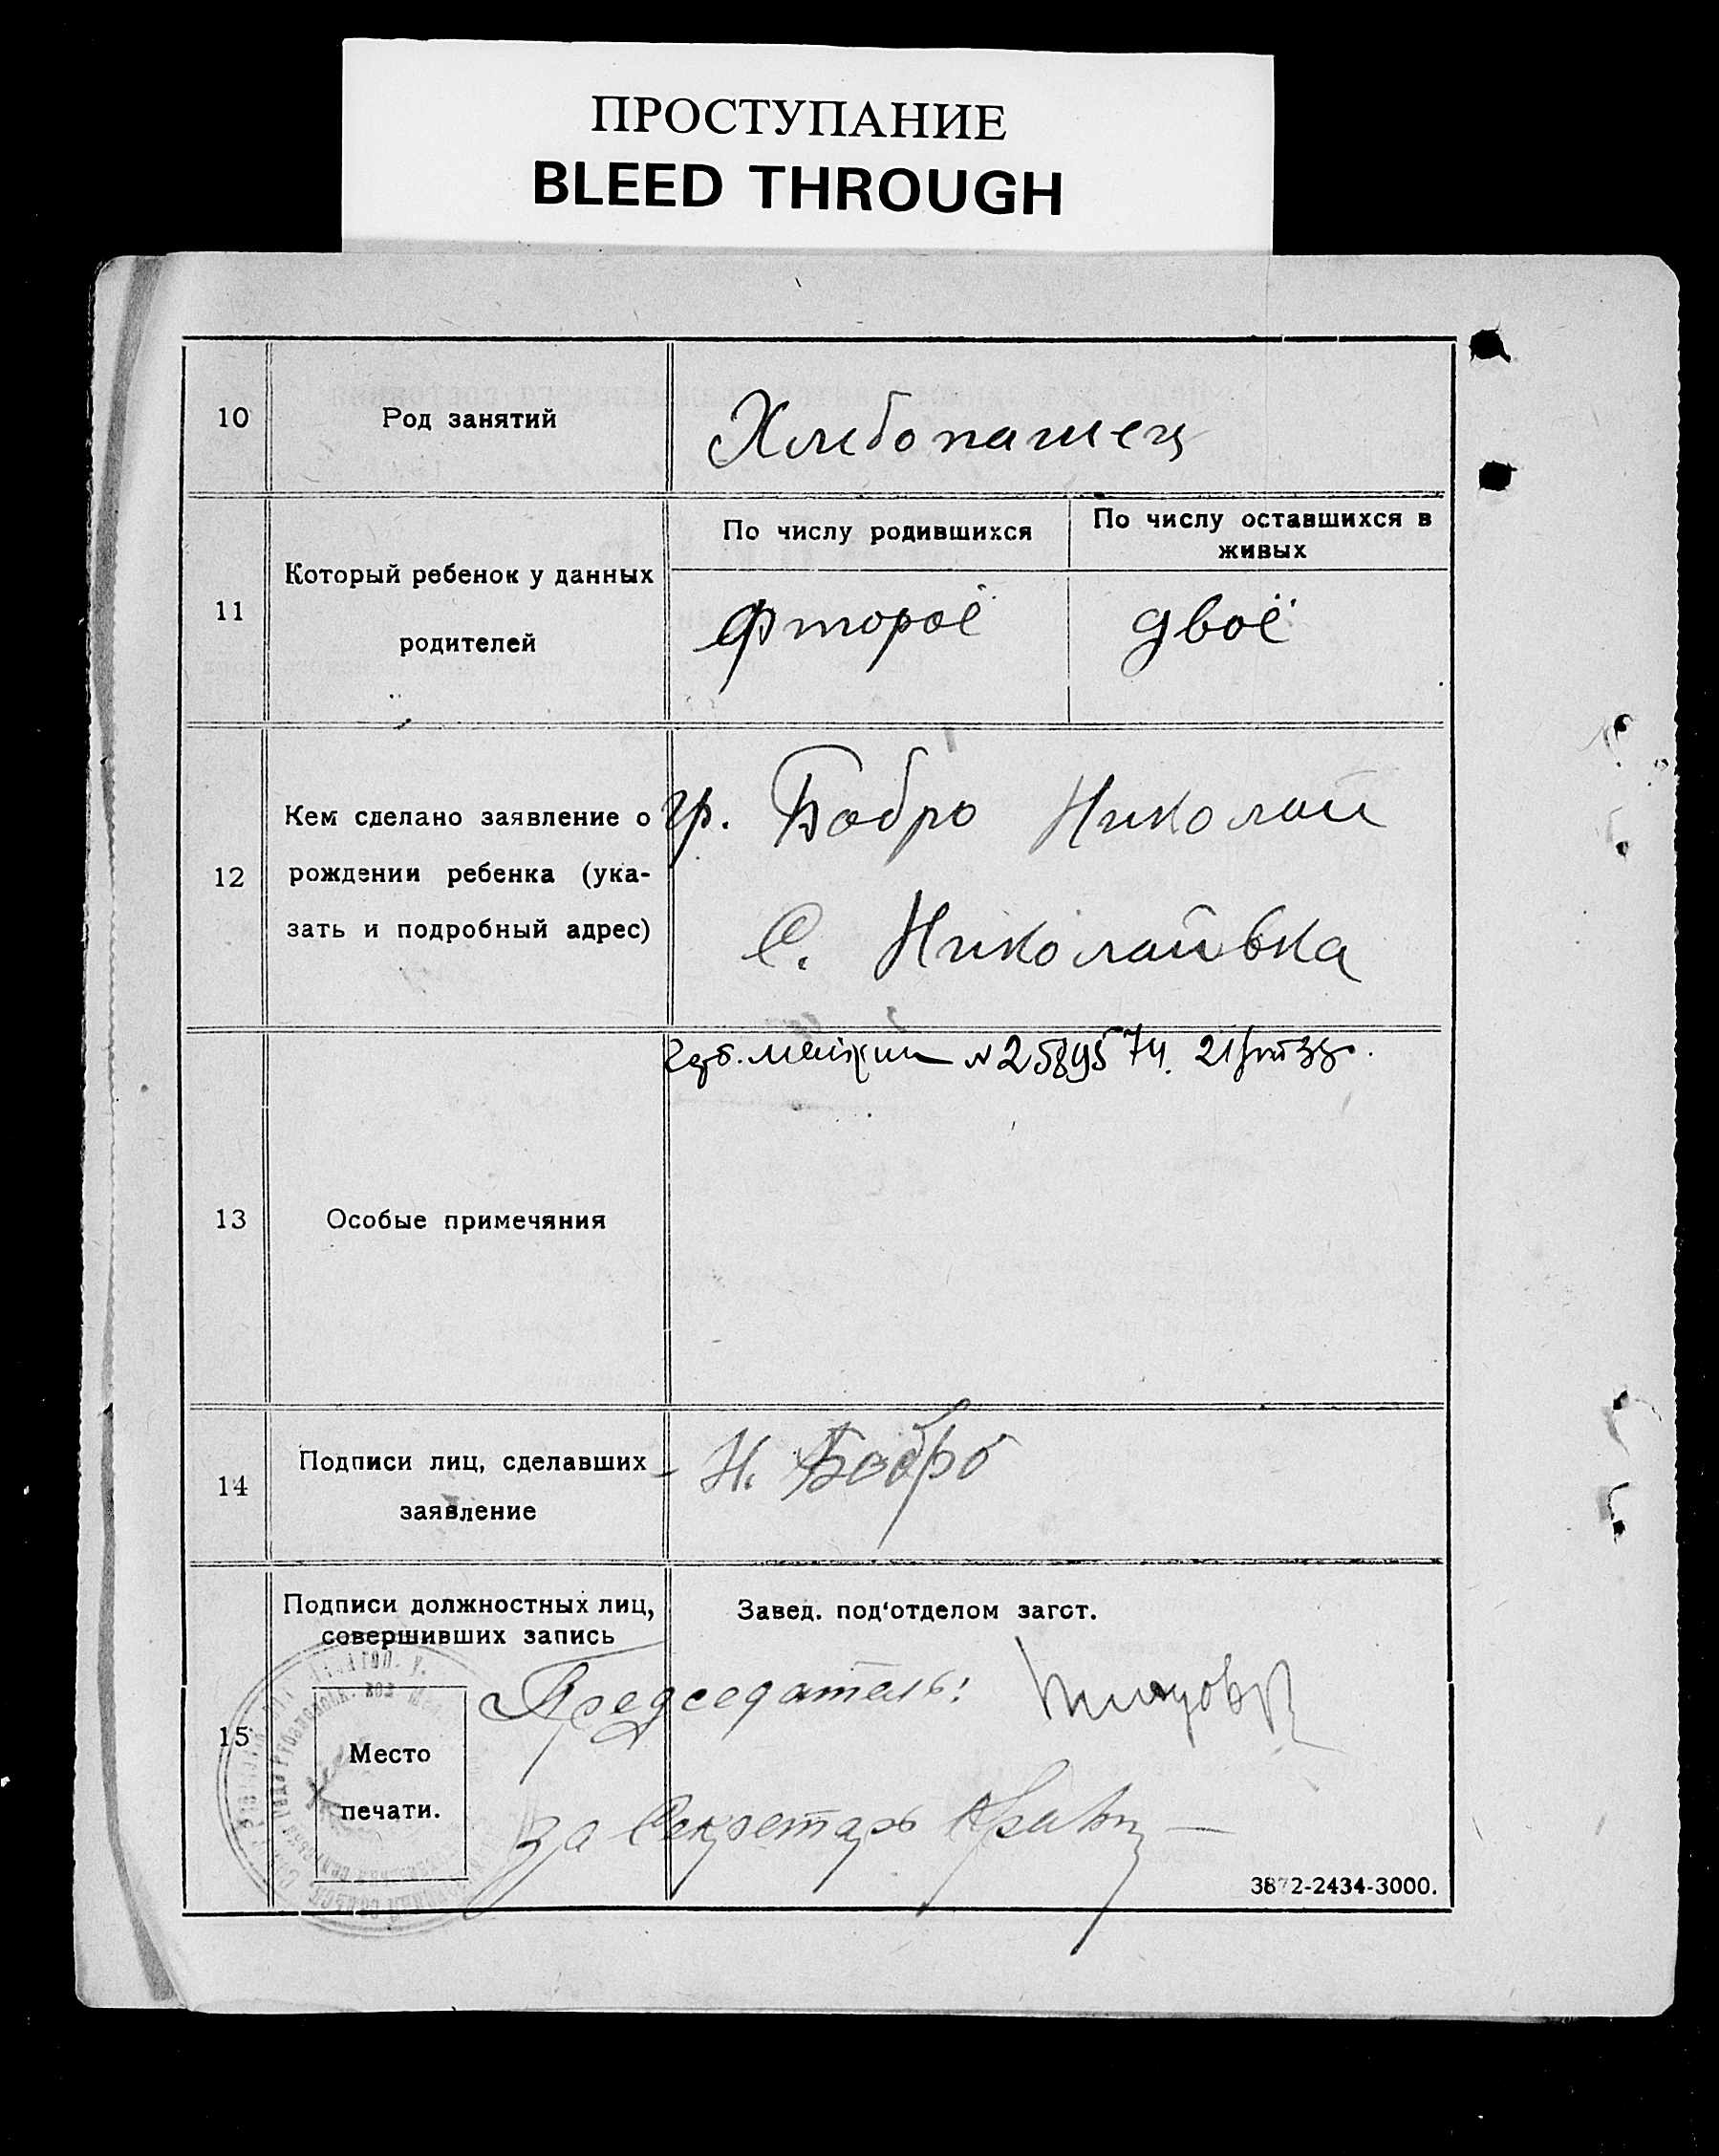 ПРОСТУПАНИЕ
BLEED THROUGH
10
Род занятий
Хлебопашец
11
Который ребенок у данных
родителей
По числу родившихся
По числу оставшихся в
живых
Фтороё
двоё
12
Кем сделано заявление о
рождении ребенка (ука-
зать и подробный адрес)
гр. Бобро Николай
С. Николайвка
13
Особые примечяния
№
14
Подписи лиц, сделавших
заявление
Н. Бобро
15
Подписи должностных лиц,
совершивших запись
Завед. под‘отделом загст.
Председатель:
Место
печати.
За Секретарь
3872-2434-3000.